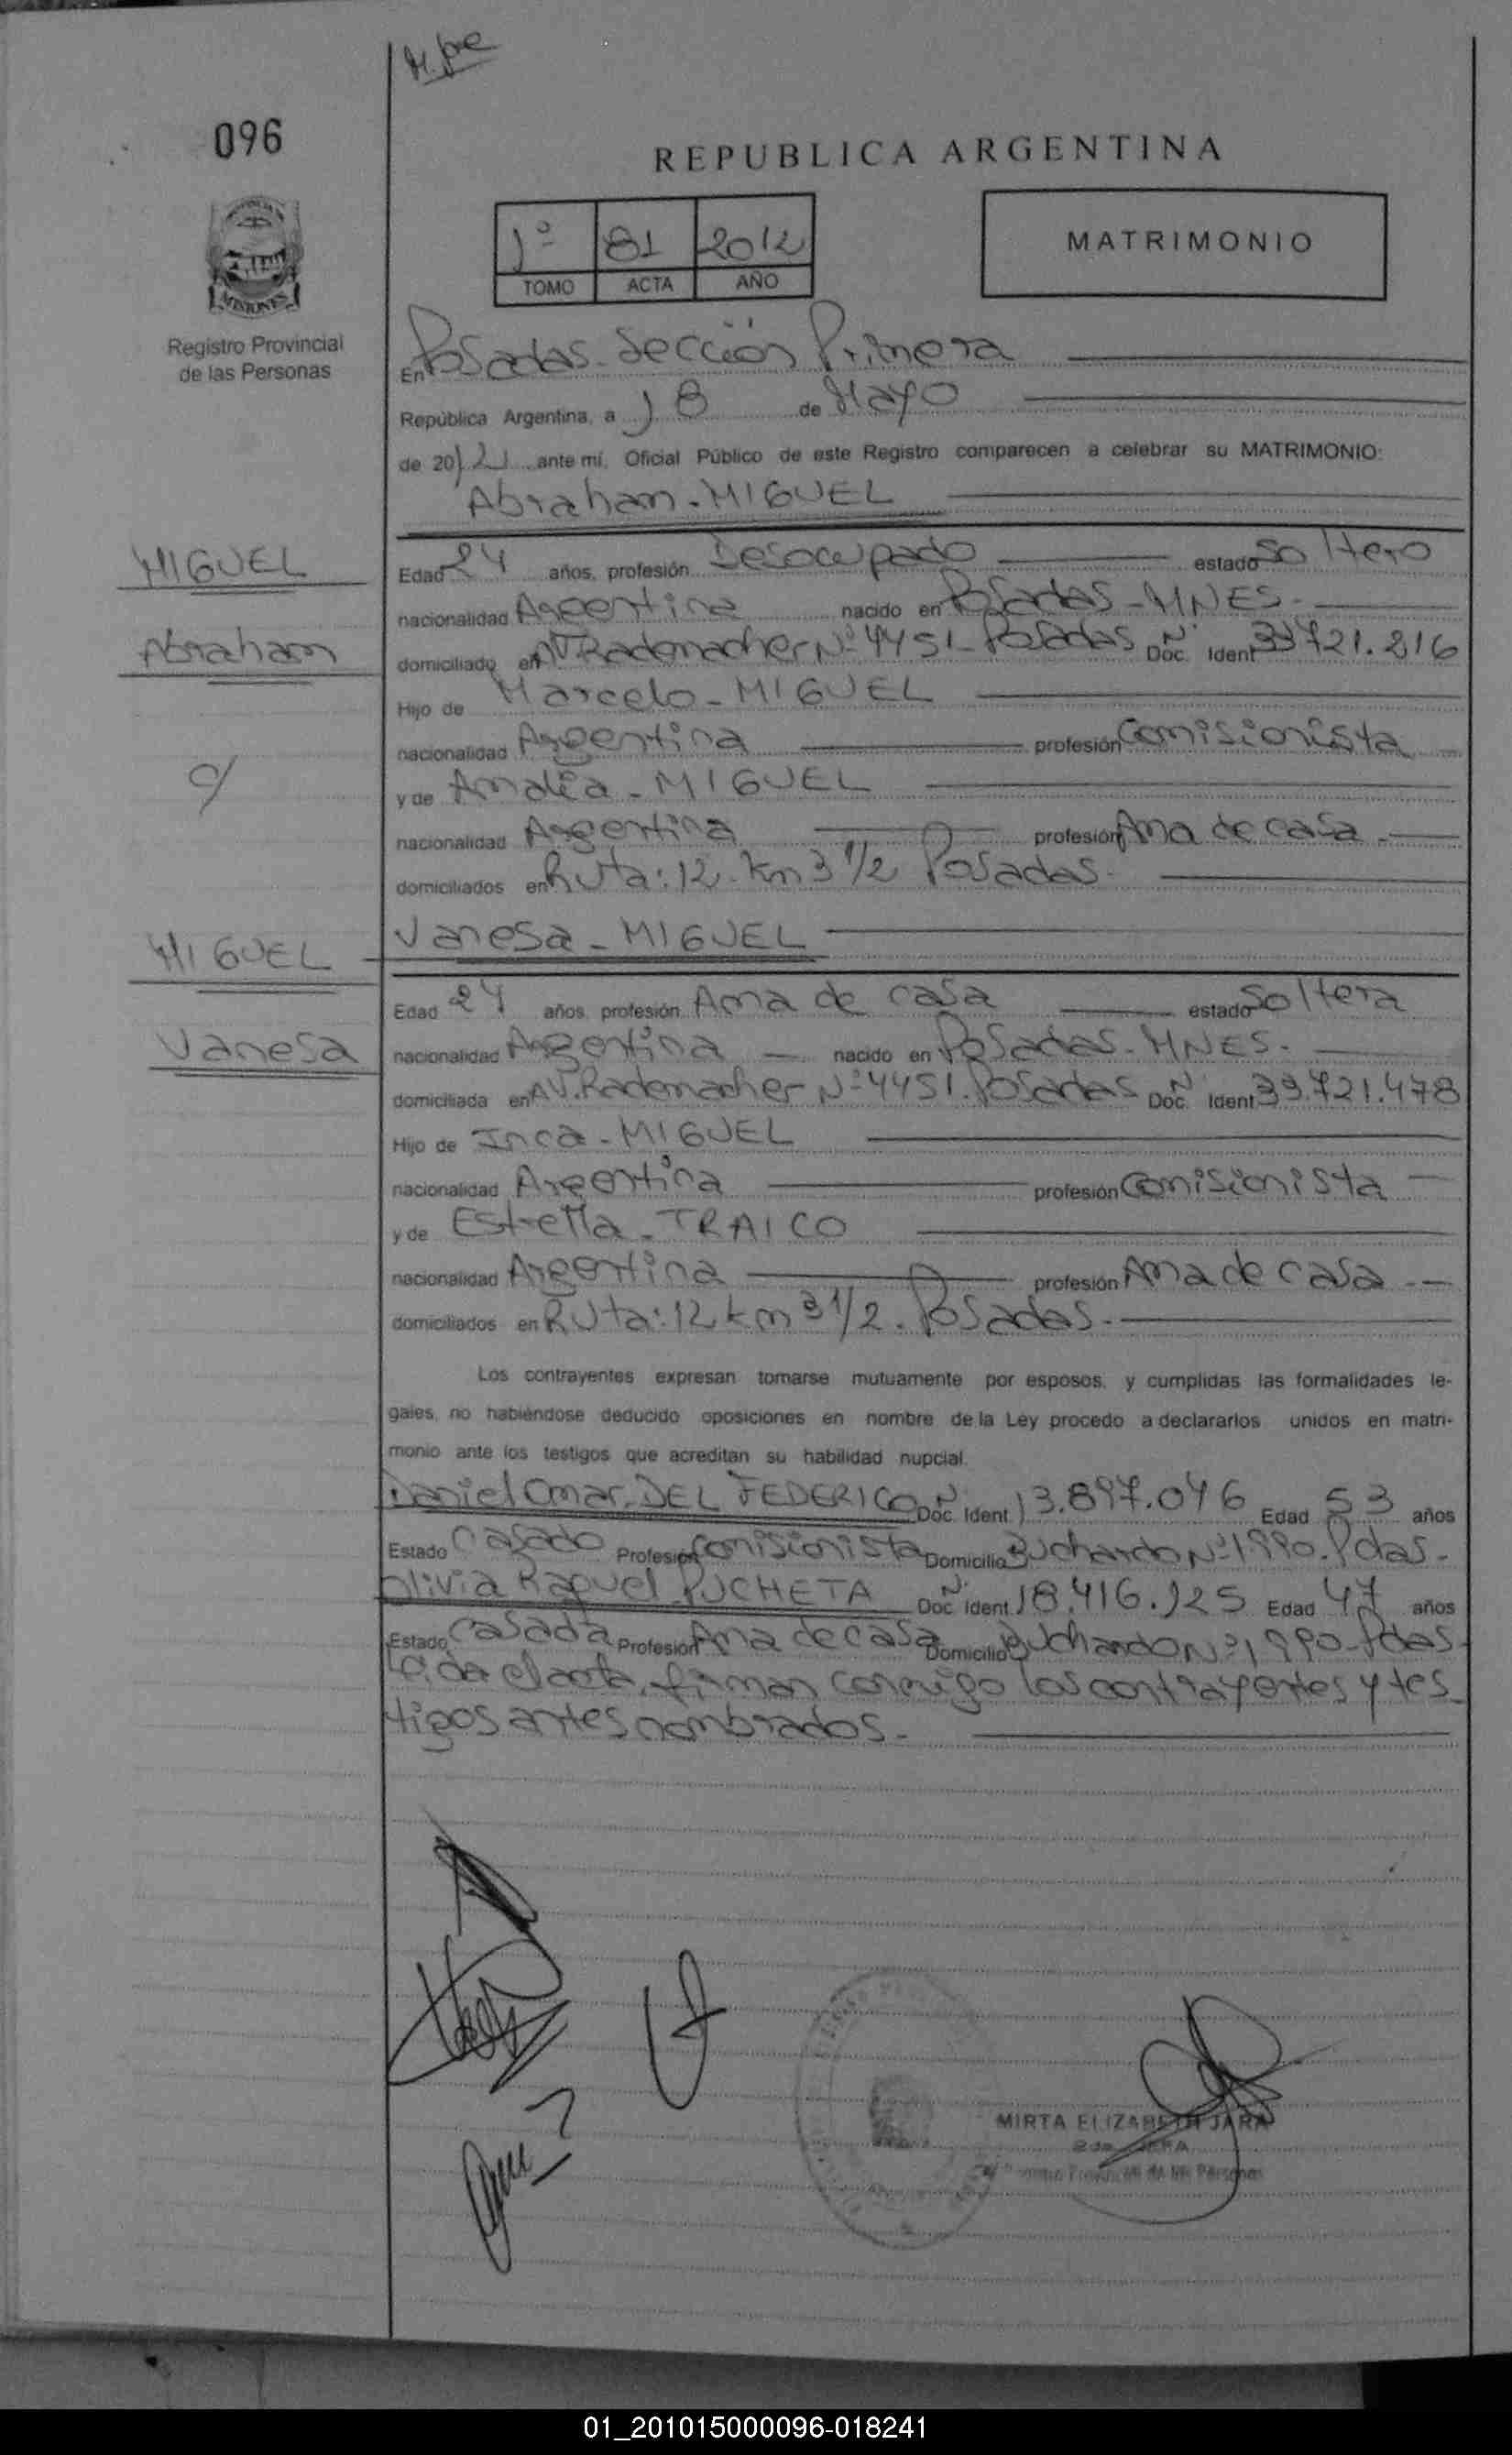 096
REPUBLICA ARGENTINA
1º 81 2012
TOMO ACTA AÑO
MATRIMONIO
MISIONES
Registro Provincial
de las Personas
En Posadas-Sección Primera
República Argentina, a 18 de Mayo
de 2012 ante mí, Oficial Público de este Registro comparecen a celebrar su MATRIMONIO:
Abraham-MIGUEL
MIGUEL
Edad 24 años, profesión Desocupado estado Soltero
nacionalidad Argentina nacido en Posadas-MNES-
Abraham
domiciliado en AV.Rademacher Nº 4451-Posadas Nº Doc. Ident 33721.216
Hijo de Marcelo-MIGUEL
nacionalidad Argentina profesión Comisionista
c/
y de Amalia-MIGUEL
nacionalidad Argentina profesión Ama de casa-
domiciliados en Ruta:12-Km 3 1/2 Posadas-
MIGUEL
Vanesa-MIGUEL
Edad 24 años profesión Ama de casa estado Soltera
Vanesa
nacionalidad Argentina nacido en Posadas-MNES-
domiciliada en AV.Rademacher Nº 4451.Posadas Nº Doc. Ident 33.721.478
Hijo de Inca-MIGUEL
nacionalidad Argentina profesión Comisionista
y de Estrella-TRAICO
nacionalidad Argentina profesión Ama de casa-
domiciliados en Ruta:12 km 3 1/2. Posadas-
Los contrayentes expresan tomarse mutuamente por esposos, y cumplidas las formalidades le-
gales, no habiéndose deducido oposiciones en nombre de la Ley procedo a declararlos unidos en matri-
monio ante los testigos que acreditan su habilidad nupcial.
Daniel Omar-DEL FEDERICO Nº Doc. Ident. 13.897.046 Edad 53 años
Estado Casado Profesión Comisionista Domicilio Buchardo Nº 1990-Pdas-
Olivia Raquel-PUCHETA Nº Doc. Ident. 18.416.125 Edad 47 años
Estado Casada Profesión Ama de casa Domicilio Buchardo Nº 1990-Pdas-
Leída el acta, firman conmigo los contrayentes y tes-
tigos antes nombrados-
MIRTA ELIZABETH JARA
2da. JEFA
01_201015000096-018241